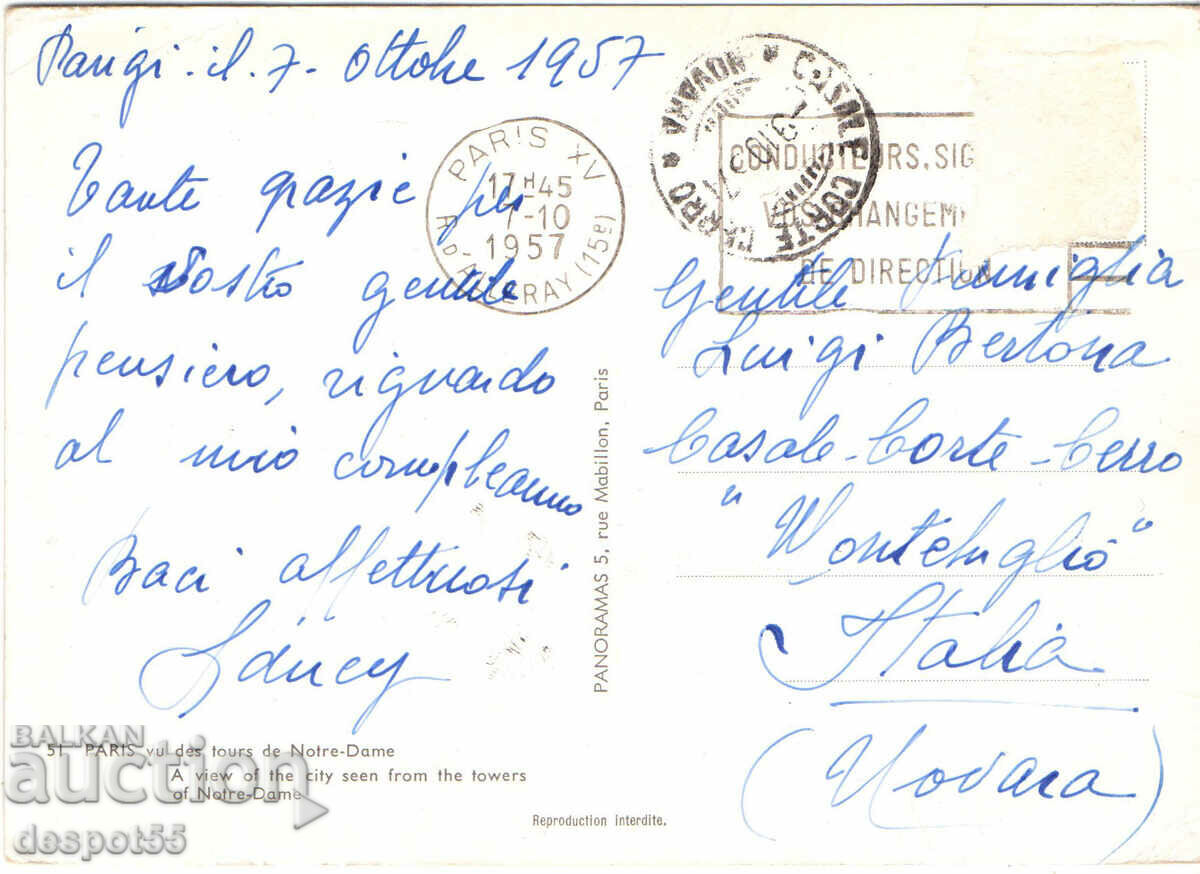 Parigi - il - 7 - Ottobre 1957
Tante grazie per
il Vostro gentile
pensiero, riguardo
al mio compleanno
Baci affettuosi
PARIS XV
17H45
7-10
1957
R. D'ALLERAY (15e)
CASALE CORTE CERRO * NOVARA *
CONDUCTEURS, SIG
VOS CHANGEM
DE DIRECTION
Gentile Famiglia
Luigi Bertona
Casale-Corte-Cerro
"Montebuglio"
Italia
(Novara)
PANORAMAS 5, rue Mabillon, Paris
51 PARIS vu des tours de Notre-Dame
A view of the city seen from the towers
of Notre-Dame
Reproduction interdite.
BALKAN
auction
despot55